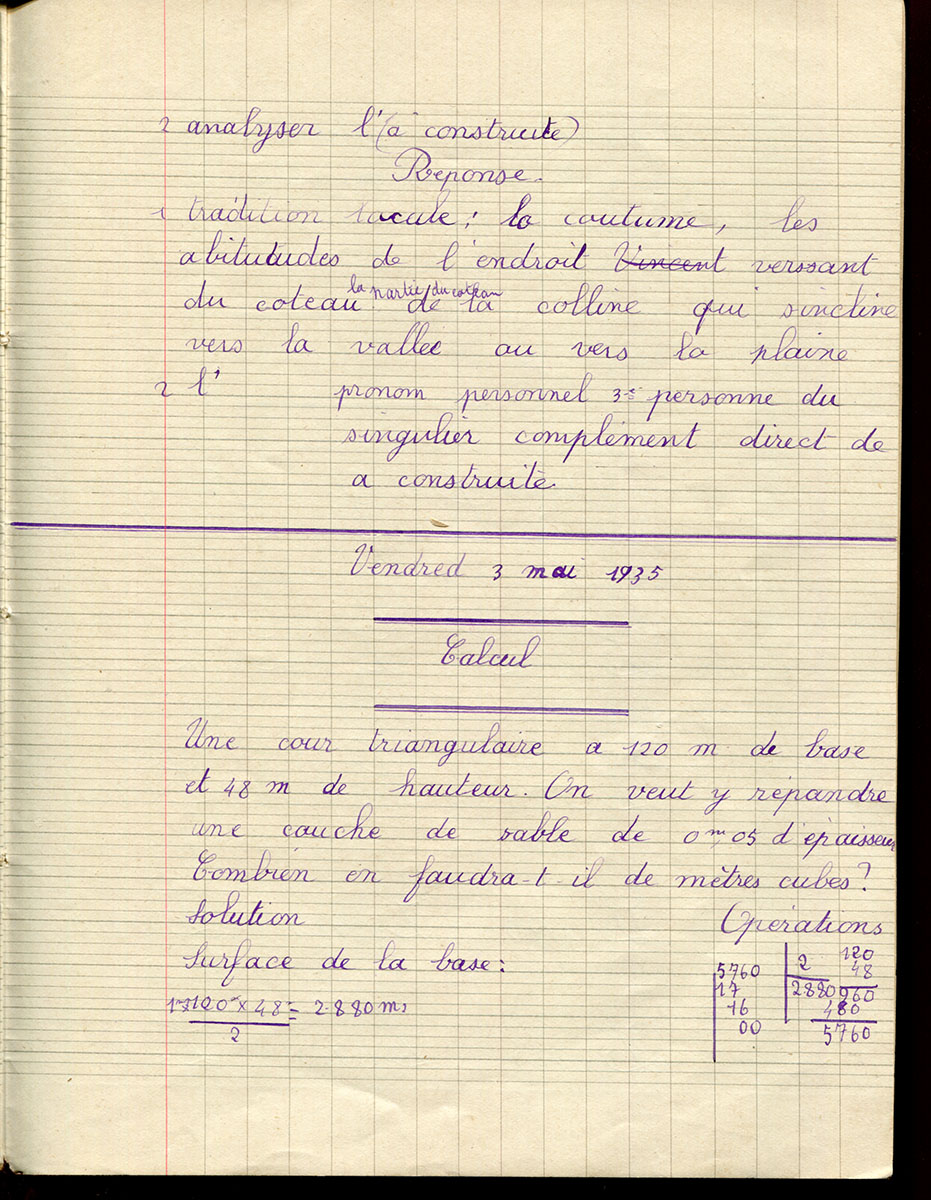 2 analyser l'(a construite)
Réponse.
1 tradition locale : la coutume, les
abitutudes de l'endroit Vincent verssant
la partie du coteau
du coteau de la colline qui s'incline
vers la vallée au vers la plaine
2 l' pronom personnel 3e personne du
singulier complément direct de
a construite
Vendred 3 mai 1935
Calcul
Une cour triangulaire a 120 m de base
et 48 m de hauteur. On veut y répandre
une couche de sable de 0m,05 d'épaisseur
Combien en faudra-t-il de mètres cubes?
Solution Opérations
Surface de la base :
120 × 48 = 2.880 m
2
5760 2 120
17 2880 48
16 960
00 480
5760